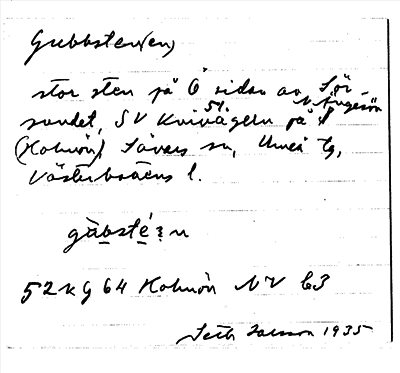 Gubbsten(en)
stor sten på Ö sidan av Sör-
sundet, SV Kvivägeln 51. på N. Ängesön
(Holmön), Sävars sn, Umeå tg,
Västerbottens l.
gàbsté:n
52 K g 64 Holmön NV C3
Seth Jansson 1935